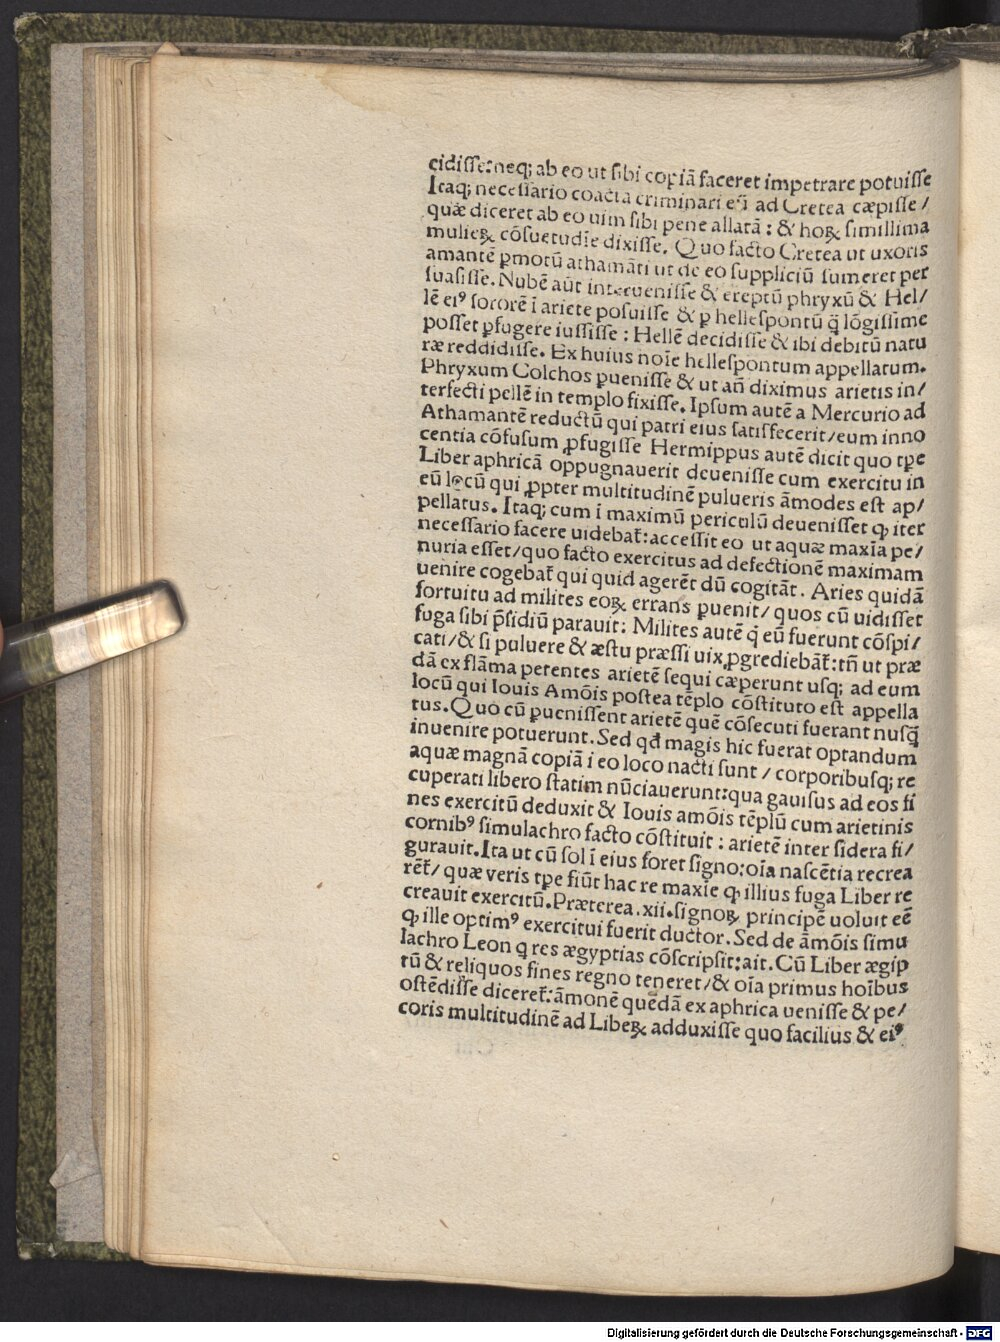 cidiſſe:neq; ab eo ut ſibi copiā faceret impetrare potuiſſe
Itaq; neceſſario coacta criminari eū ad Cretea cæpiſſe/
quæ diceret ab eo uim ſibi pene allatā: & hoꝝ ſimillima
mulieꝝ cōſuetudīe dixiſſe. Quo facto Cretea ut uxoris
amantē ꝑmotū athamāti ut de eo ſuppliciū ſumeret per
ſuaſiſſe. Nubē aūt interueniſſe & ereptū phryxū & Hel/
lē eiꝰ ſororē ī ariete poſuiſſe & ꝑ helleſpontū q̄ lōgiſſime
poſſet ꝓfugere iuſſiſſe: Hellē decidiſſe & ibi debitū natu
ræ reddidiſſe. Ex huius noīe helleſpontum appellatum.
Phryxum Colchos ꝑueniſſe & ut añ diximus arietis in/
terfecti pellē in templo fixiſſe. Ipſum autē a Mercurio ad
Athamantē reductū qui patri eius ſatiſfecerit/eum inno
centia cōfuſum ꝓfugiſſe Hermippus autē dicit quo tꝑe
Liber aphricā oppugnauerit deueniſſe cum exercitu in
eū locū qui ꝓpter multitudinē pulueris āmodes eſt ap/
pellatus. Itaq; cum ī maximū periculū deueniſſet ꝙ iter
neceſſario facere uidebat̄: acceſſit eo ut aquæ maxīa pe/
nuria eſſet/quo facto exercitus ad defectionē maximam
uenire cogebat̄ qui quid agerēt dū cogitāt. Aries quidā
fortuitu ad milites eoꝝ errans ꝑuenit/ quos cū uidiſſet
fuga ſibi p̄ſidiū parauit: Milites autē q̄ eū fuerunt cōſpi/
cati/& ſi puluere & æſtu præſſi uix ꝓgrediebāt̄:tñ ut præ
dā ex flāma petentes arietē ſequi cæperunt uſq; ad eum
locū qui Iouis Amōis poſtea tēplo cōſtituto eſt appella
tus. Quo cū ꝑueniſſent arietē quē cōſecuti fuerant nuſq̄
inuenire potuerunt. Sed qđ magis hic fuerat optandum
aquæ magnā copiā ī eo loco nacti ſunt/ corporibuſq; re
cuperati libero ſtatim nūciauerunt:qua gauiſus ad eos fi
nes exercitū deduxit & Iouis amōis tēplū cum arietinis
cornibꝰ ſimulachro facto cōſtituit: arietē inter ſidera fi/
gurauit. Ita ut cū ſol ī eius foret ſigno:oīa naſcētia recrea
rēt̄/ quæ veris tꝑe fiūt hac re maxīe ꝙ illius fuga Liber re
creauit exercitū. Præterea .xii. ſignoꝝ principē uoluit eē
ꝙ ille optimꝰ exercitui fuerit ductor. Sed de āmōis ſimu
lachro Leon q res ægyptias cōſcripſit:ait. Cū Liber ægip
tū & reliquos fines regno teneret/& oīa primus hoībus
oſtēdiſſe diceret̄: āmonē quēdā ex aphrica ueniſſe & pe/
coris multitudinē ad Libeꝝ adduxiſſe quo facilius & eiꝰ
Digitalisierung gefördert durch die Deutsche Forschungsgemeinschaft - DFG